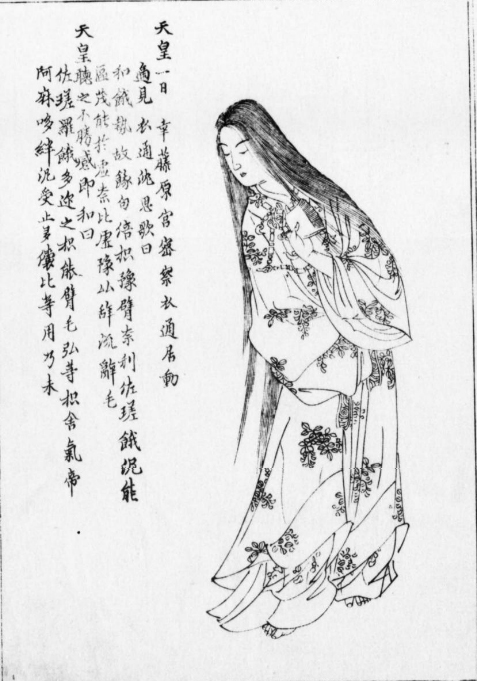 天皇一日 幸藤原宮密察衣通居動
適見 衣通沈思歌曰
和餓勢故餓勾倍枳豫臂奈利佐瑳餓泥能
區茂能於虛奈比虛豫比辭流辭毛
天皇聴之不勝感即和曰
佐瑳羅餓多迹之枳能臂毛弘等枳舍氣帝
阿麻哆絆泥受 比等用乃未